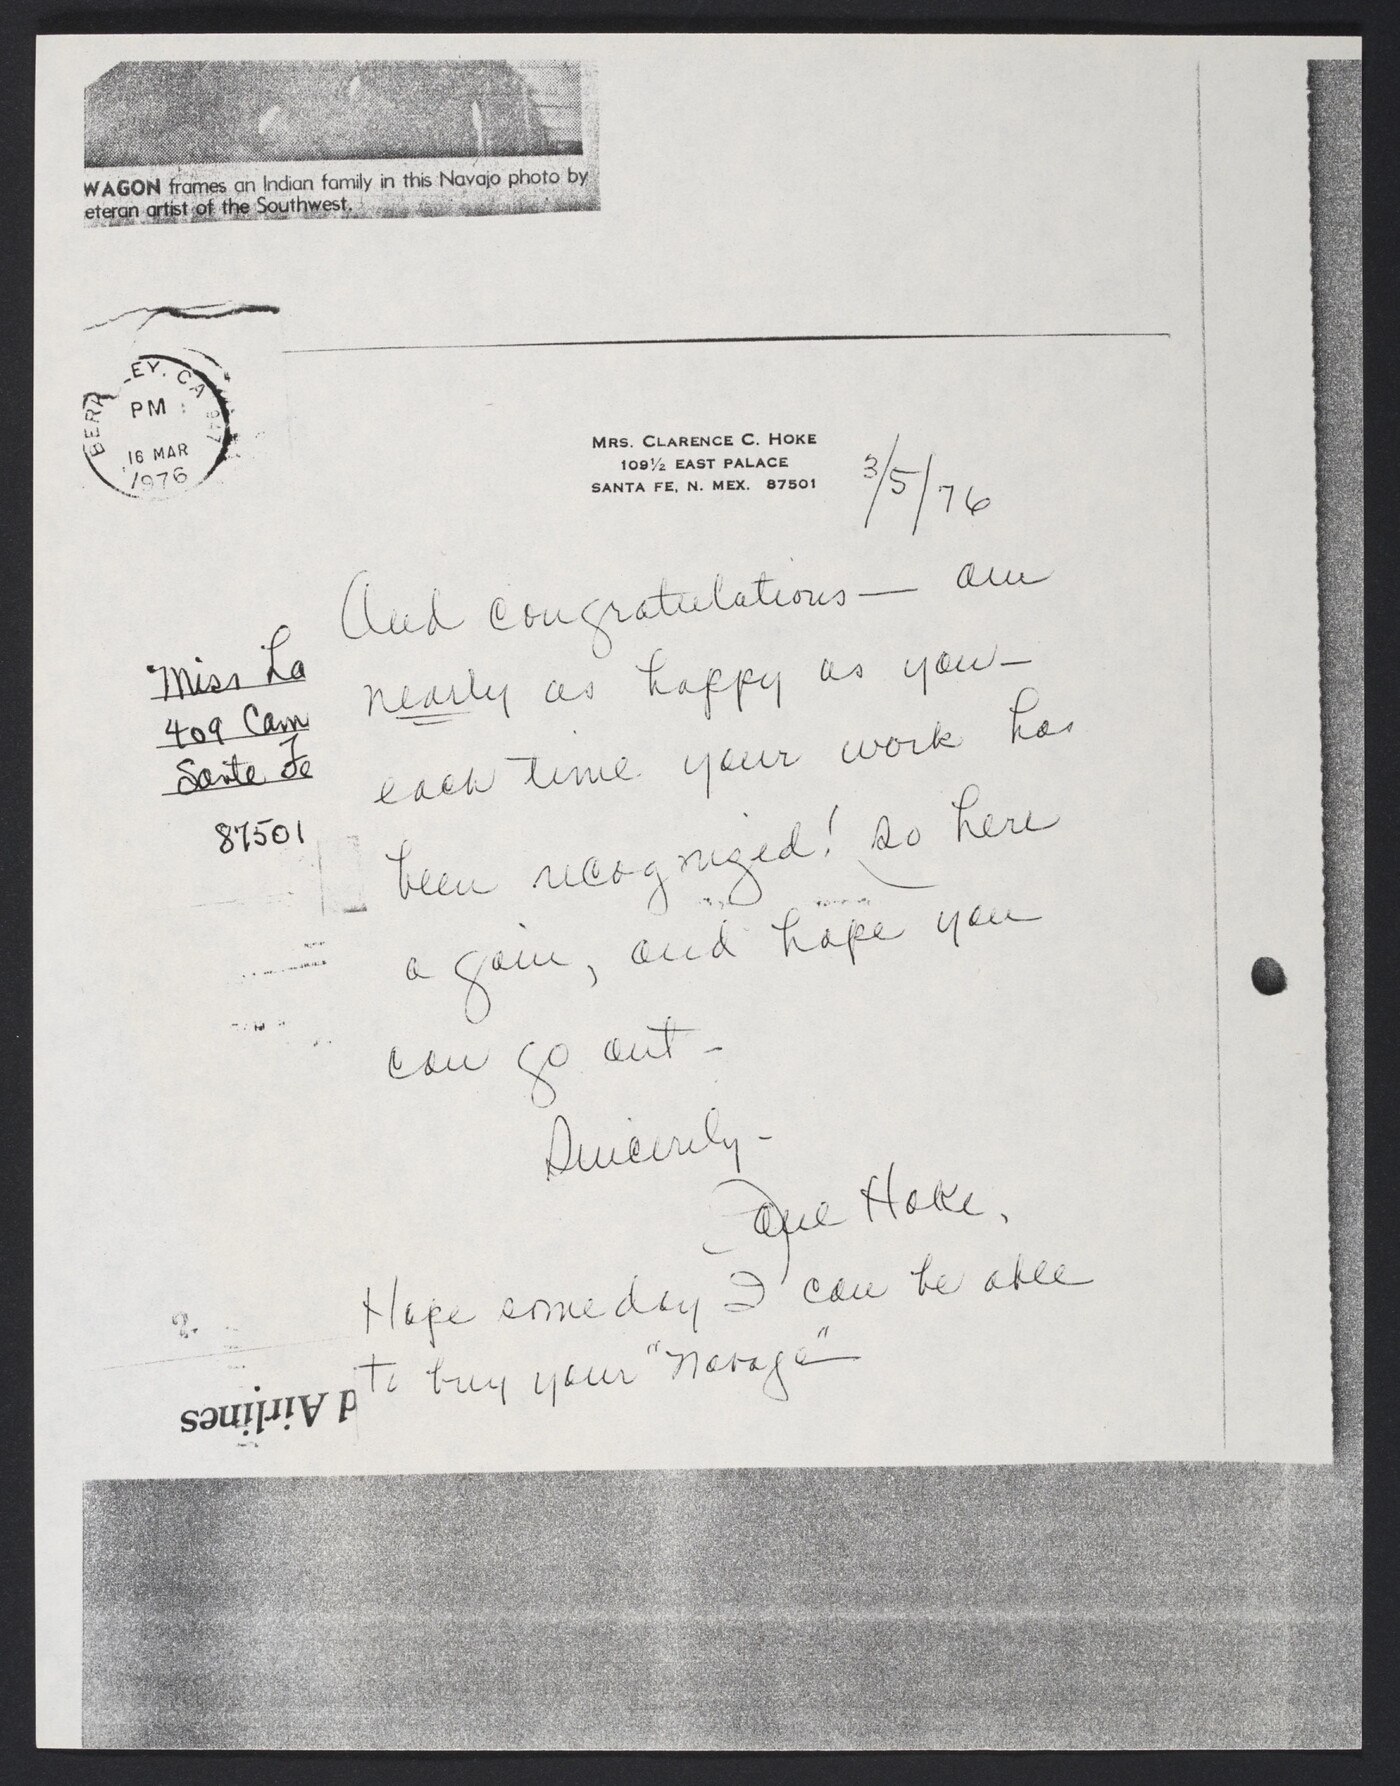 WAGON frames an Indian family in this Navajo photo by
eteran artist of the Southwest.
BERK EY, CA 947
PM
16 MAR
1976
MRS. CLARENCE C. HOKE
109½ EAST PALACE
SANTA FE, N. MEX. 87501
3/5/76
And congratulations— am
nearly as happy as you—
each time your work has
been recognized! so here
again, and hope you
can go out -
Sincerely -
Jane Hoke.
Hope someday I can be able
to buy your "Navajo"
Miss La
409 Cam
Sante Fe
87501
d Airlines